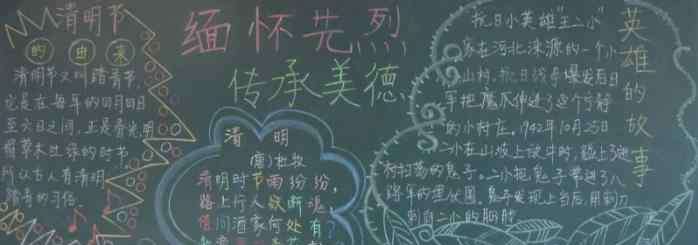 清明节
的由来
清明节又叫踏青节,
它是在每年的四月四日
至六日之间,正是春光明
媚草木吐绿的时节,
所以古人有清明
踏青的习俗.
缅怀先烈
传承美德
清明
(唐)杜牧
清明时节雨纷纷,
路上行人欲断魂,
借问酒家何处有?
英雄的故事
抗日小英雄"王二小"
家在河北涞源的一个小
山村,抗日战争爆发后日
军把魔爪伸进了这个宁静
的小村庄。1942年10月25日
小在山坡上放牛时,碰上了进
村扫荡的鬼子。二小把鬼子带进了八
路军的埋伏圈。鬼子发现上当后,用刺刀
刺向二小的胸膛